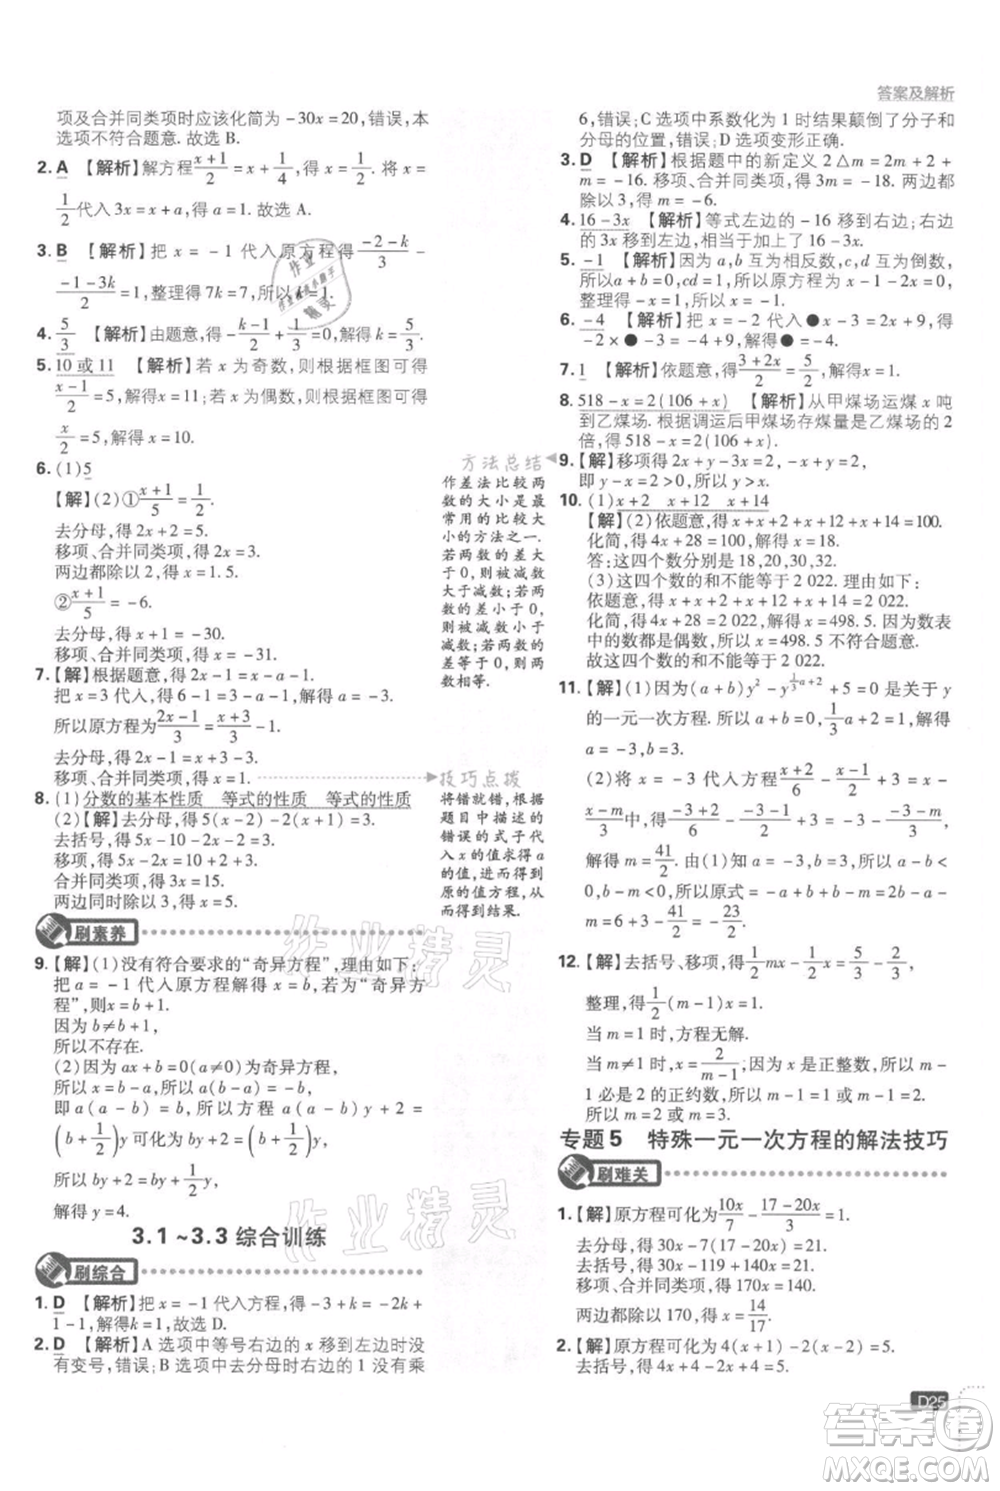 答案及解析
项及合并同类项时应该化简为 -30x=20,错误,本
选项不符合题意.故选 B.
2. A 【解析】解方程(x+1)/2=x+1/4,得 x=1/2.将 x=
1/2代入 3x=x+a,得 a=1.故选 A.
3. B 【解析】把 x=-1 代入原方程得(-2-k)/3-
(-1-3k)/2=1,整理得 7k=7,所以 k=1.
4. 5/3 【解析】由题意,得-(k-1)/2+1/3=0,解得 k=5/3.
5. 10 或 11 【解析】若 x 为奇数,则根据框图可得
(x-1)/2=5,解得 x=11.若 x 为偶数,则根据框图可得
x/2=5,解得 x=10.
6. (1)5
【解】(2)①(x+1)/5=1/2.
去分母,得 2x+2=5.
移项、合并同类项,得 2x=3.
两边都除以 2,得 x=1.5.
②(x+1)/5=-6.
去分母,得 x+1=-30.
移项、合并同类项,得 x=-31.
7.【解】根据题意,得 2x-1=x+a-1.
把 x=3 代入,得 6-1=3+a-1,解得 a=3.
所以原方程为(2x-1)/3=(x+3)/3-1.
去分母,得 2x-1=x+3-3.
移项、合并同类项,得 x=1.
8. (1)分数的基本性质 等式的性质 等式的性质
(2)【解】去分母,得 5(x-2)-2(x+1)=3.
去括号,得 5x-10-2x-2=3.
移项,得 5x-2x=3+10+2.
合并同类项,得 3x=15.
两边同时除以 3,得 x=5.
刷素养
9.【解】(1)没有符合要求的“奇异方程”,理由如下:
把 a=-1 代入原方程解得 x=b,若为“奇异方
程”,则 x=b+1,
因为 b≠b+1,
所以不存在.
(2)因为 ax+b=0(a≠0)为奇异方程,
所以 x=b-a,所以 a(b-a)+b=0,
即 a(a-b)=b,所以方程 a(a-b)y+2=
(b+1/2)y可化为 by+2=(b+1/2)y,
所以 by+2=by+1/2y,
解得 y=4.
3.1~3.3 综合训练
刷综合
1. D 【解析】把 x=-1 代入方程,得-3+k=-4+
1,解得k=0.故选 D.
2. D 【解析】A 选项中等号右边的 x 移到左边时没
有变号,错误;B 选项中去分母时等号右边的 1 没有乘
方法总结
作差法比较两
数的大小是最
常用的比较大
小的方法之一.
若两数的差大
于 0,则被减数
大于减数;若两
数的差小于 0,
则被减数小于
减数;若两数的
差等于 0,则两
数相等.
技巧点拨
将错就错,根据
题目中描述的
错误的式子代
入 x 的值求得 a
的值,进而得到
原的值方程,才
能得到所求的
结果.
6,错误;C 选项中系数化为 1 时结果颠倒了分子和
分母的位置,错误;D 选项变形正确.
3. D 【解析】根据题中的新定义 2△m=2m+2+
m=-16.移项、合并同类项,得 3m=-18.两边都
除以 3,得 m=-6.
4. 16-3x 【解析】等式左边的-16 移到右边;右边
的 3x 移到左边,相当于两边同时加上 16-3x.
5. -1 【解析】因为 a,b 互为相反数,x,y 互为倒数,
所以a+b=0,xy=1.
整理得 2x=-2,解得 x=-1.
6. -4 【解析】把 x=-2 代入●x-3=2x+9,得
-2●-3=-4+9,解得●=-4.
7. 1 【解析】依题意,得(3+2x)/2=5/2,解得 x=1.
8. 518-x=2(106+x) 【解析】从甲煤场运煤 x 吨
到乙煤场.根据调运后甲煤场存煤量是乙煤场的 2
倍,得 518-x=2(106+x).
9.【解】移项得 2x+y-3x-y+x=2,
即 y-x=2>0,所以 y>x.
10. (1)x+2 x+12 x+14
【解】(2)依题意,得 x+x+2+x+12+x+14=100.
化简,得 4x+28=100,解得 x=18.
答:这四个数分别是 18,20,30,32.
(3)这四个数的和不能等于 2 022.理由如下:
依题意,得 x+x+2+x+12+x+14=2 022.
化简,得 4x+28=2 022,解得 x=498.5.因为数表
中的数都是偶数,所以 x=498.5 不符合题意.
故这四个数的和不能等于 2 022.
11.【解】(1)因为(a+b)y²-y^(1/3a+2)+5=0 是关于 y
的一元一次方程,所以 a+b=0,1/3a+2=1,解得
a=-3,b=3.
(2)将 x=-3 代入方程(x+2)/6-(x-1)/2+3=x-
(x-m)/3中,得(-3+2)/6-(-3-1)/2+3=-3-(-3-m)/3,
解得 m=41/2.由(1)知 a=-3,b=3,所以 a-b<
0,b-m<0,所以原式=-a+b+2b-2m=-a+3b-
m=5+6+3-41/2=-23/2.
12.【解】去括号、移项,得1/2mx-1/2x=3/2-1/2,
整理,得1/2(m-1)x=1.
当 m=1 时,方程无解.
当 m≠1 时,解得 x=2/(m-1).因为 x 是正整数,所以
m-1 必是 2 的正约数,所以 m-1=1 或 m-1=2,
所以 m=2 或 m=3.
专题 5 特殊一元一次方程的解法技巧
刷难关
1.【解】原方程可化为10x/7-(17-20x)/3=1.
去分母,得 30x-7(17-20x)=21.
去括号,得 30x-119+140x=21.
移项、合并同类项,得 170x=140.
两边都除以 170,得 x=14/17.
2.【解】原方程可化为 4(x+1)-2(x-2)=5.
去括号,得 4x+4-2x+4=5.
D25
作业精灵
作业精灵
答案圈
MXQE.COM